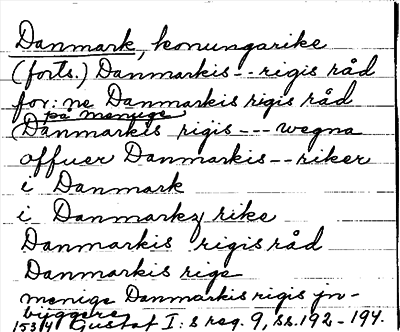 Danmark, konungarike
(forts.) Danmarkis -- rigis råd
for:ne Danmarkis rigis råd
på menige
(Danmarkis rigis --- wegna
offuer Danmarkis -- riker
i Danmark
i Danmarkz rike
Danmarkis rigis råd
Danmarkis rige
menige Danmarkis rigis jn-
byggere
1534 Gustaf I:s reg. 9, ss. 192-194.